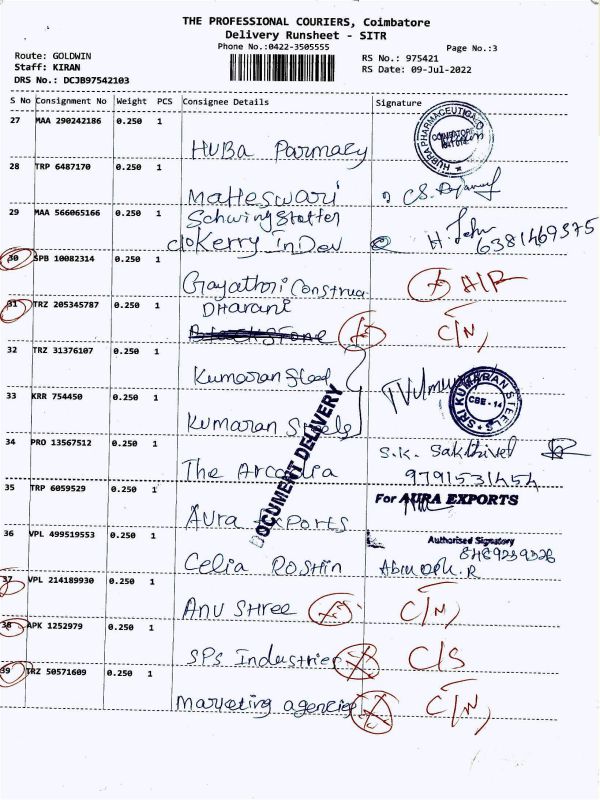 THE PROFESSIONAL COURIERS, Coimbatore
Delivery Runsheet - SITR
Phone No.:0422-3505555
Page No.:3
Route: GOLDWIN
Staff: KIRAN
DRS No.: DCJB97542103
RS No.: 975421
RS Date: 09-Jul-2022
S No Consignment No Weight PCS Consignee Details Signature
27 MAA 290242186 0.250 1
HUBa Parmacy
HUBRA PHARMACEUTICALS COIMBATORE
28 TRP 6487170 0.250 1
Maheswari
29 MAA 566065166 0.250 1
Schwing Stetter
c/o Kerry InDev H. John 6381469375
30 SPB 10082314 0.250 1
Gayathri Construa A/R
31 TRZ 205345787 0.250 1
DHarani C/N
32 TRZ 31376107 0.250 1
Kumaran Steel
33 KRR 754450 0.250 1
Kumaran Steels
SRI KUMARAN STEELS CBE - 14
DOCUMENT DELIVERY
34 PRO 13567512 0.250 1
The Arcadia S.K. Sakthivel
9791531454
35 TRP 6059529 0.250 1
For AURA EXPORTS
Aura Exports
Authorised Signatory
36 VPL 499519553 0.250 1
Celia Roshin
37 VPL 214189930 0.250 1
Anu Shree C/N
38 APK 1252979 0.250 1
SPs Industries C/S
39 TRZ 50571609 0.250 1
marketing agencies C/N